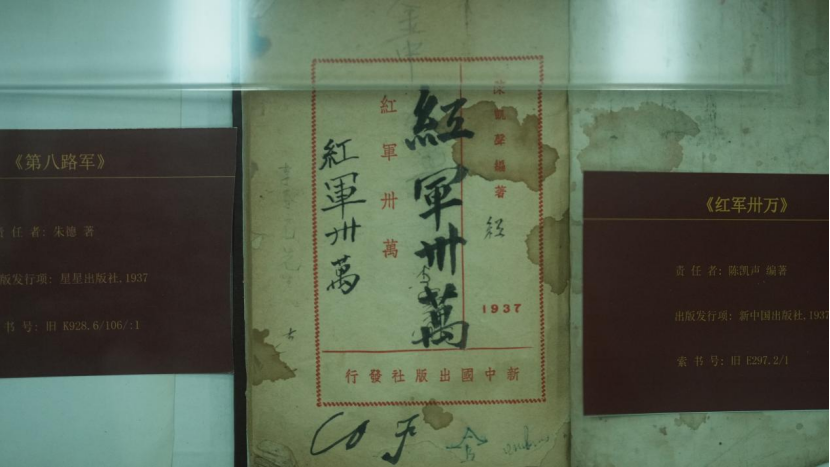 《第八路军》
责 任 者: 朱德 著
出版发行项: 星星出版社,1937
书 号: 旧 K928.6/106/:1
紅軍卅萬
紅軍卅萬
紅軍卅萬
編著
1937
行發社版出國中新
《红军卅万》
责 任 者: 陈凯声 编著
出版发行项: 新中国出版社,1937
索 书 号: 旧 E297.2/1